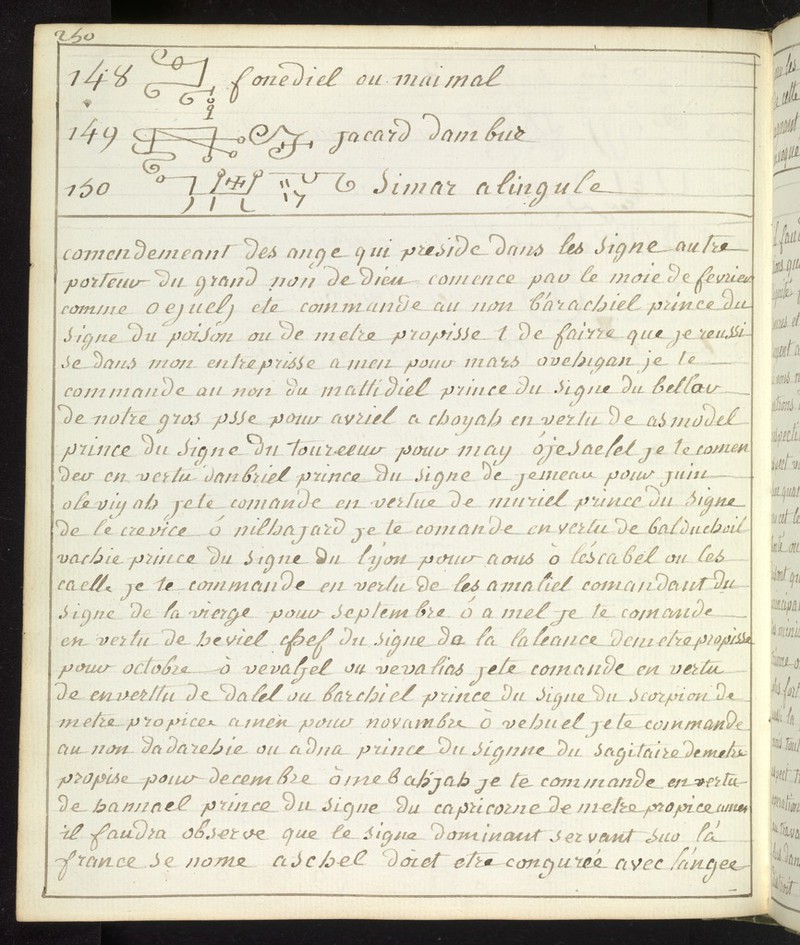 250
148 fonediel ou maimal
149 jacard dambue
150 Simar alingule
comendemeant des ange qui preside dans les signe autre
porteur du grand non de dieu comence par le moie de fevrier
comme oejuelj ete commande au non barachiel prince du
signe du poison ou de metre propisse t de fairre que je reussi
se dans mon entreprisse amen pour mars ovehigan je te
commande au non du mattidiel prince du signe du bellar
de notre gros psse pour avriel a choyah en vertu de asmodel
prince du signe du toureeur pour may ojesaelel je te comen
der en vertu danbriel prince du signe de jemeau pour juin
oleviyah je te comande en vertue de muriel prince du signe
de le crevice ó nilhajard je te comande en vertu de balducheil
vachie prince du signe du lyon pour aous ò léscabel ou les
caelle je te commande en vertu de les amaliel comandant du
signe de la vierge pour septembre ó a mel je te comande
en vertu de heviel chef du signe de la laleance demetre propisse
pour octobre ò vevaljel ou vevalias je te comande en vertu
de enverttu de dalel ou barchiel prince du signe du scorpion de
metre propice amen pour novambre ò vehuel je te commande
au non dadarehie ou adna prince du signne du sagitaire demetre
propise pour decembre òmebahjah je te commande en vertu
de hannael prince du signe du capricorne de metre propice amen
il faudra observe que le signe dominant servant sur lá
france se nome aschel doiet etre congurée avec lángee